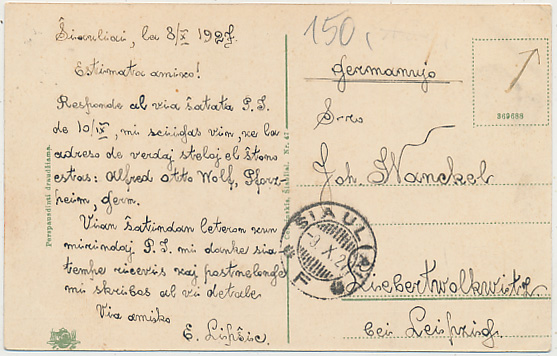 Šiauliai, la 8/X 1927.
Estimata amiko!
Responde al via ŝatata P.I.
de 10/IX, mi sciigas vin, ke la
adreso de verdaj steloj el ŝtono
estas: Alfred Otto Wolf, Pforz-
heim, Germ.
Vian ŝatindan leteron kun
mirindaj P.I. mi danke sia-
tempe ricevis kaj postnelonge
mi skribos al vi detale.
Via amiko
E. Lipŝic.
Perspausdinti draudžiama.
Šiauliai. Nr. 47
150,
Germanujo
S-ro
Joh. Wanckel
Liebertwolkwitz
bei Leipzig.
369688
ŠIAULIAI
-9.X.27
F